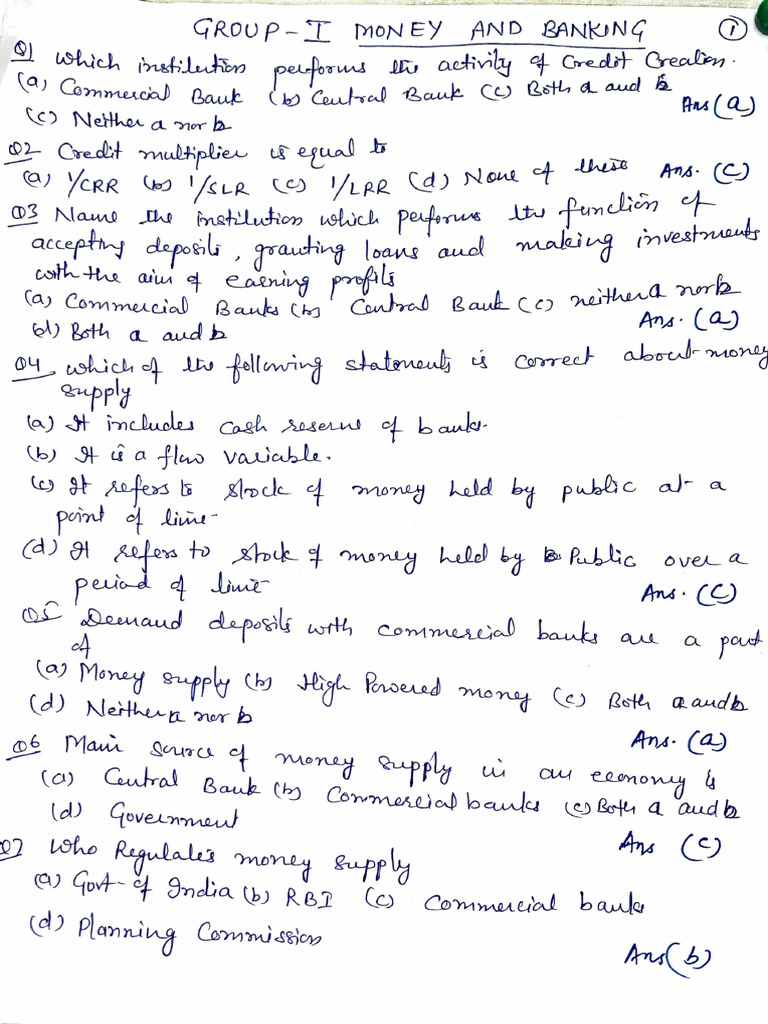 GROUP-I MONEY AND BANKING ①
Q1 which institution performs the activity of Credit Creation.
(a) Commercial Bank (b) Central Bank (c) Both a and b
(c) Neither a nor b Ans (a)
Q2 Credit multiplier is equal to
(a) 1/CRR (b) 1/SLR (c) 1/LRR (d) None of these Ans. (c)
Q3 Name the institution which performs the function of
accepting deposits, granting loans and making investments
with the aim of earning profits
(a) Commercial Banks (b) Central Bank (c) neither a nor b
(d) Both a and b Ans. (a)
Q4 which of the following statements is correct about money
supply
(a) It includes cash reserve of banks.
(b) It is a flow variable.
(c) It refers to stock of money held by public at a
point of time-
(d) It refers to stock of money held by Public over a
period of time Ans. (c)
Q5 Demand deposits with commercial banks are a part
of
(a) Money supply (b) High Powered money (c) Both a and b
(d) Neither a nor b Ans. (a)
Q6 Main source of money supply in an economy is
(a) Central Bank (b) Commercial banks (c) Both a and b
(d) Government Ans (c)
Q7 Who Regulates money supply
(a) Govt- of India (b) RBI (c) Commercial banks
(d) Planning Commission Ans (b)